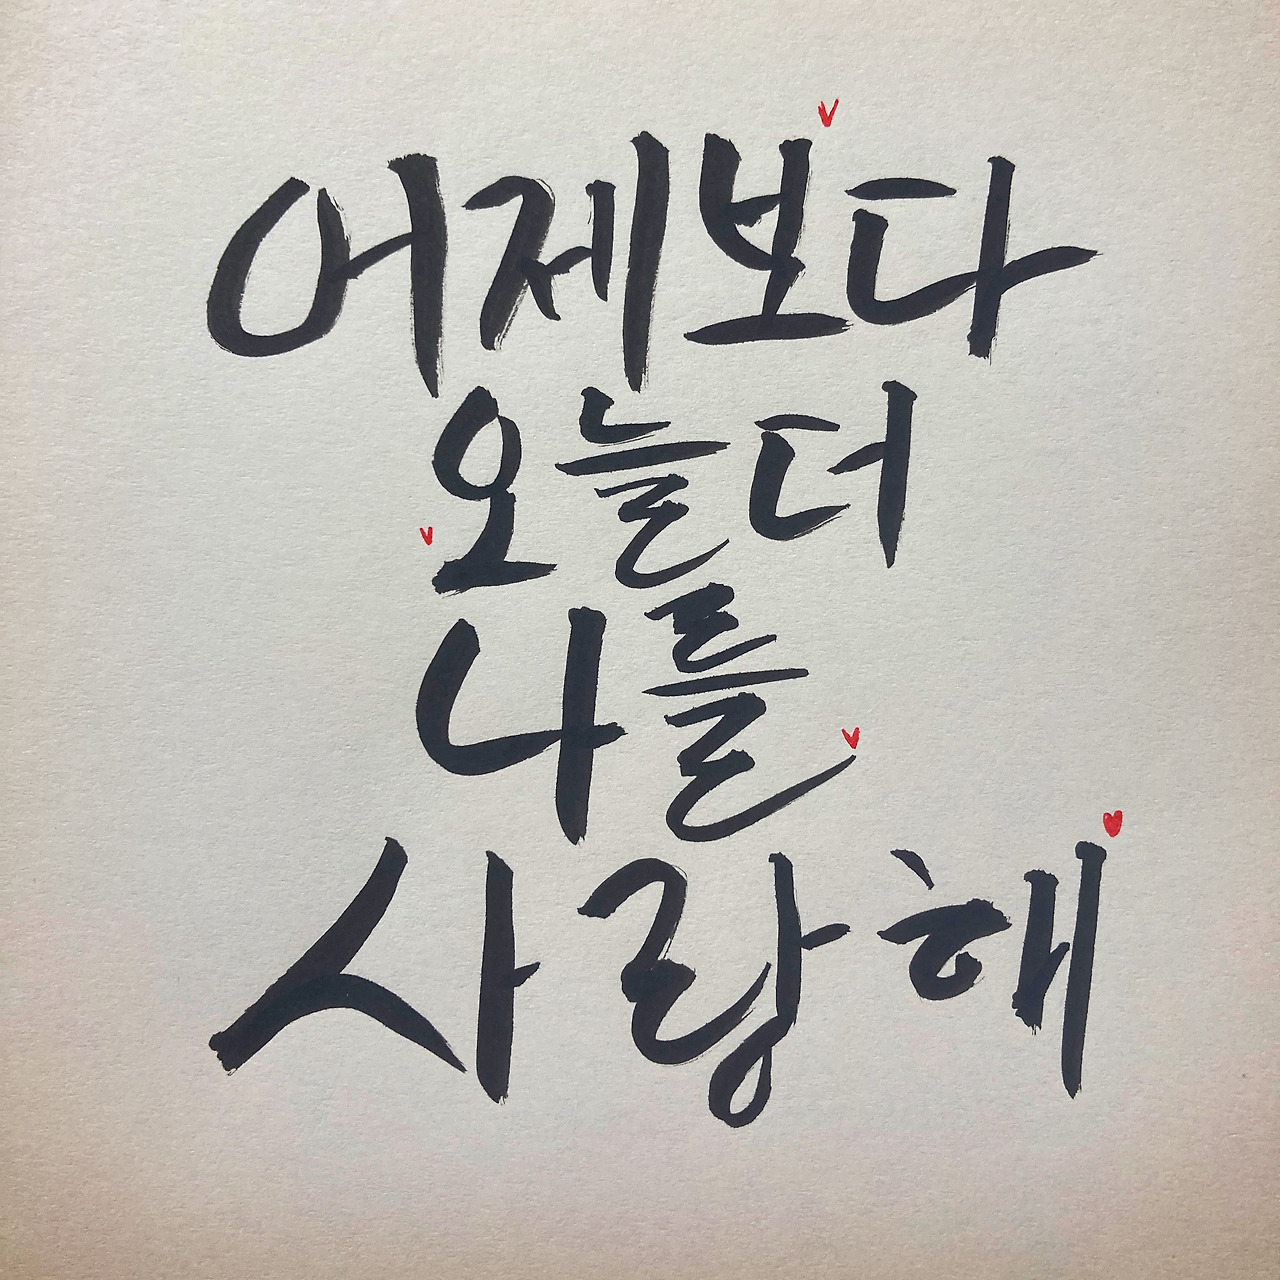 어제보다
오늘 더
나를
사랑해